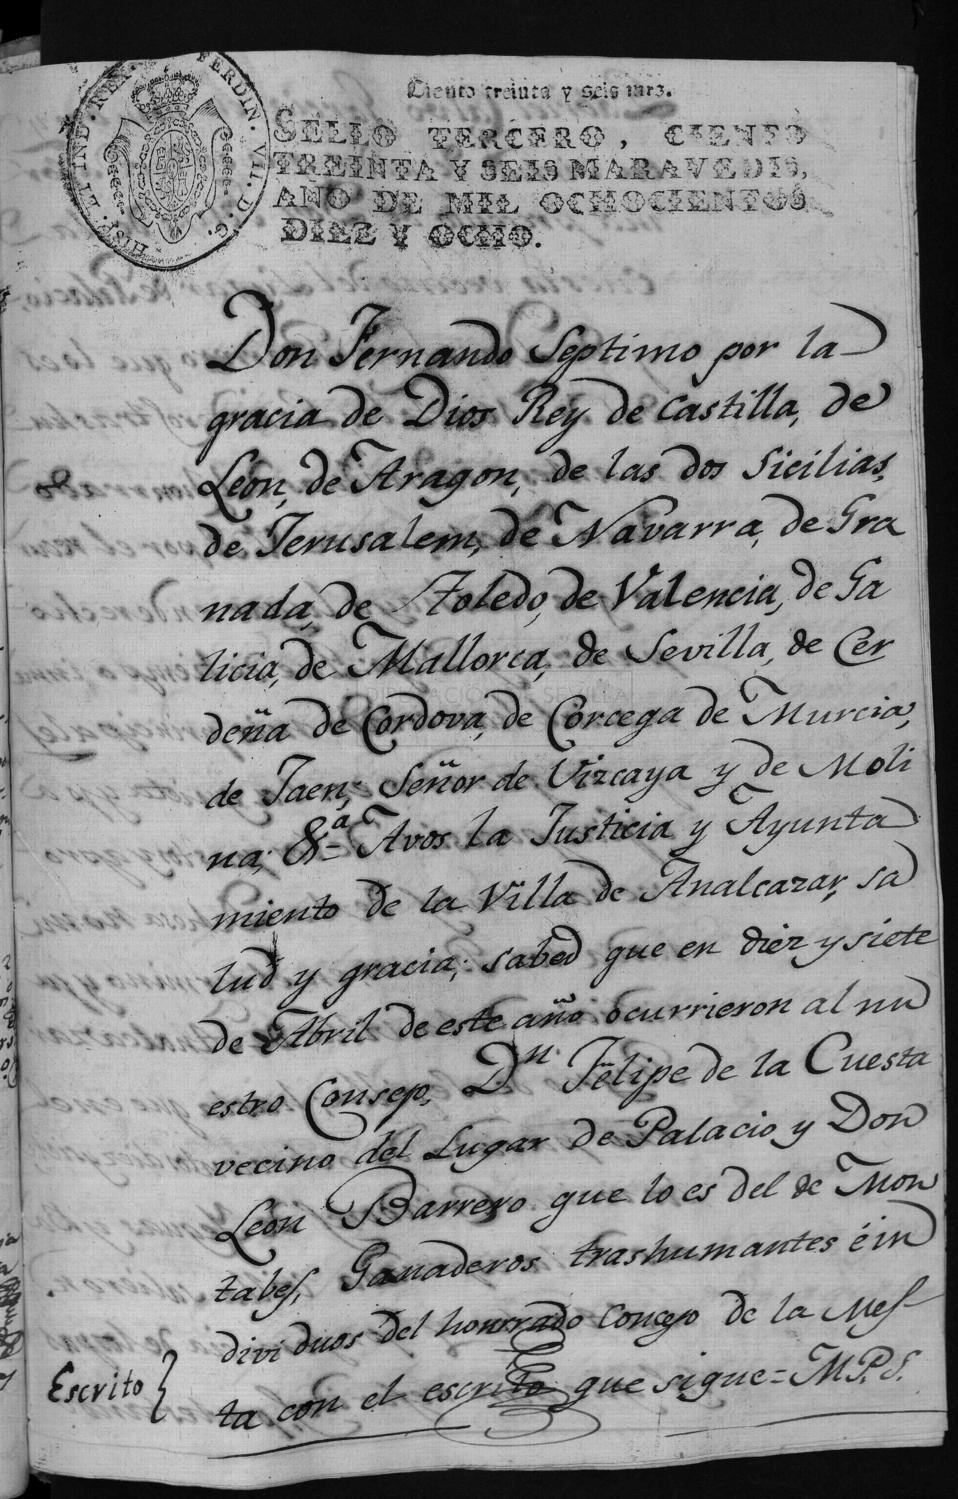 HISP. ET IND. REX. FERDIN. VII. D. G.
Ciento treinta y seis mrs.
SELLO TERCERO, CIENTO
TREINTA Y SEIS MARAVEDIS,
AÑO DE MIL OCHOCIENTOS
DIEZ Y OCHO.
Don Fernando Septimo por la
gracia de Dios Rey de Castilla, de
Leon, de Aragon, de las dos Sicilias,
de Jerusalem, de Navarra, de Gra
nada, de Toledo, de Valencia, de Ga
licia, de Mallorca, de Sevilla, de Cer
deña de Cordova, de Corcega de Murcia,
de Jaen, Señor de Vizcaya y de Moli
na, &a = Avos la Justicia y Ayunta
miento de la Villa de Analcazar, sa
lud y gracia; sabed que en diez y siete
de Abril de este año ocurrieron al nu
estro Consejo, Dn. Felipe de la Cuesta
vecino del Lugar de Palacio y Don
Leon Barrero que lo es del de Mon
tabes, Ganaderos trashumantes é in
dividuos del honrrado Concejo de la Mes
ta con el escrito que sigue = M. P. S.
Escrito }
DIPUTACIÓN DE SEVILLA